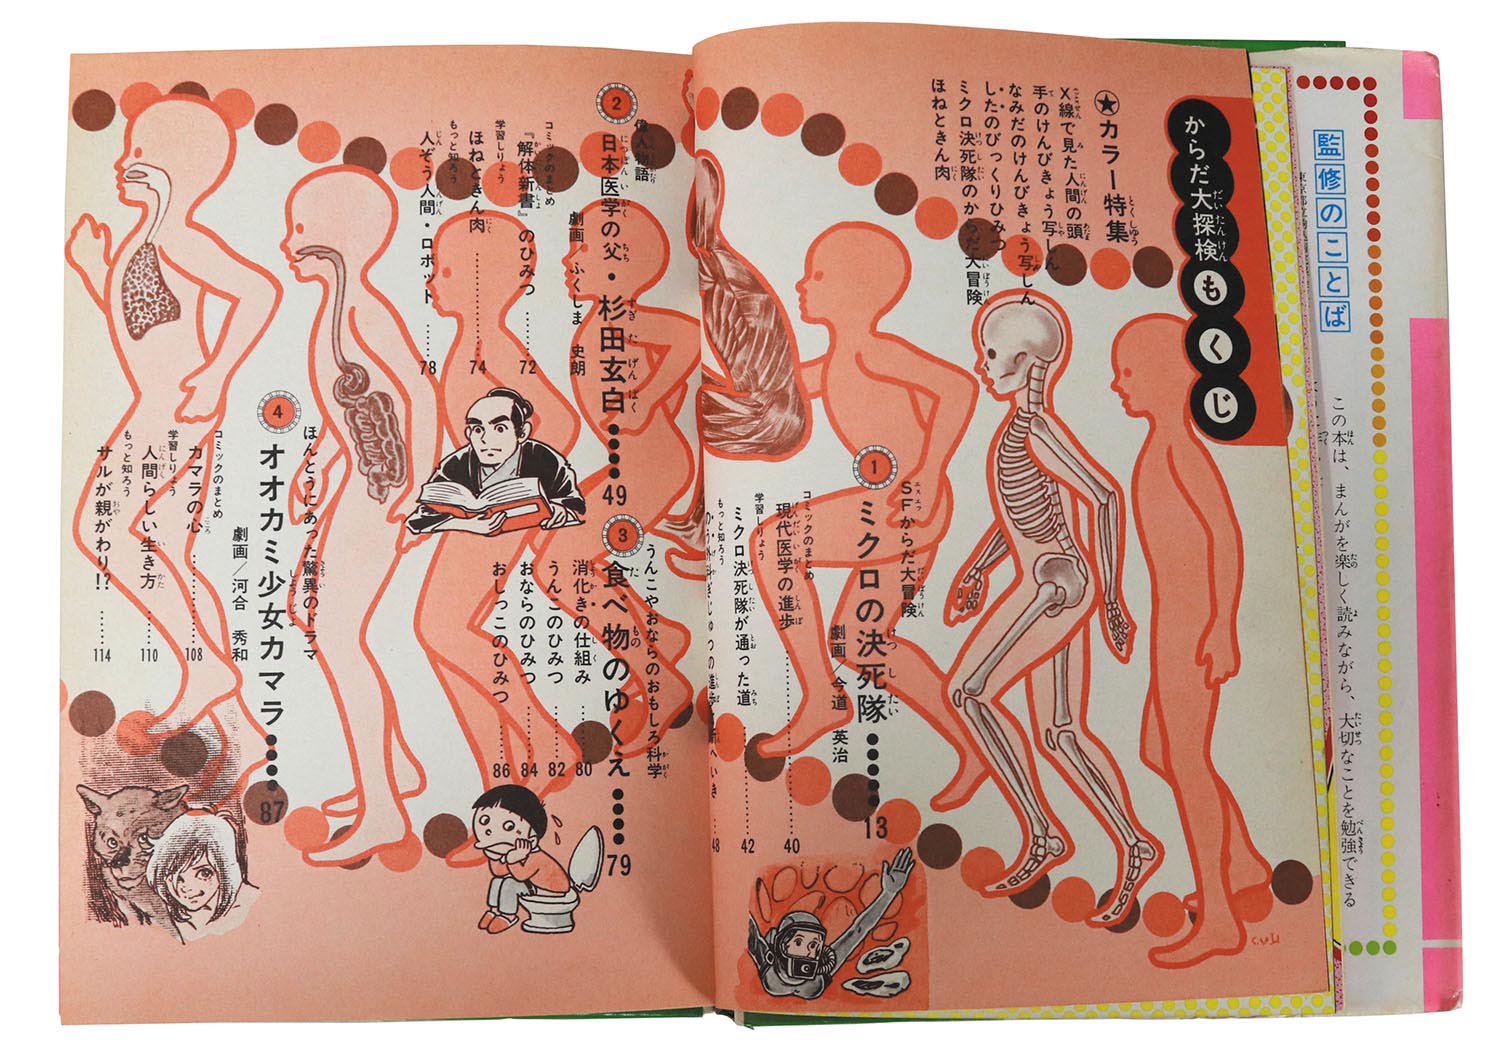 監修のことば
この本は、まんがを楽しく読みながら、大切なことを勉強できる
からだ大探検もくじ
★カラー特集
X線で見た人間の頭
手のけんびきょう写しん
なみだのけんびきょう写しん
したのびっくりひみつ
ミクロ決死隊のからだ大冒険
ほねときん肉
1
SFからだ大冒険
ミクロの決死隊……13
劇画／今道 英治
コミックのまとめ
現代医学の進歩……40
学習しりょう
ミクロ決死隊が通った道……42
もっと知ろう
48
偉人物語
2
日本医学の父・杉田玄白……49
劇画 ふくしま 史朗
コミックのまとめ
『解体新書』のひみつ……72
学習しりょう
ほねときん肉……74
もっと知ろう
人ぞう人間・ロボット……78
うんこやおならのおもしろ科学
3
食べ物のゆくえ……79
消化きの仕組み……80
うんこのひみつ……82
おならのひみつ……84
おしっこのひみつ……86
ほんとうにあった驚異のドラマ
4
オオカミ少女カマラ……87
劇画／河合 秀和
コミックのまとめ
カマラの心……108
学習しりょう
人間らしい生き方……110
もっと知ろう
サルが親がわり!?……114